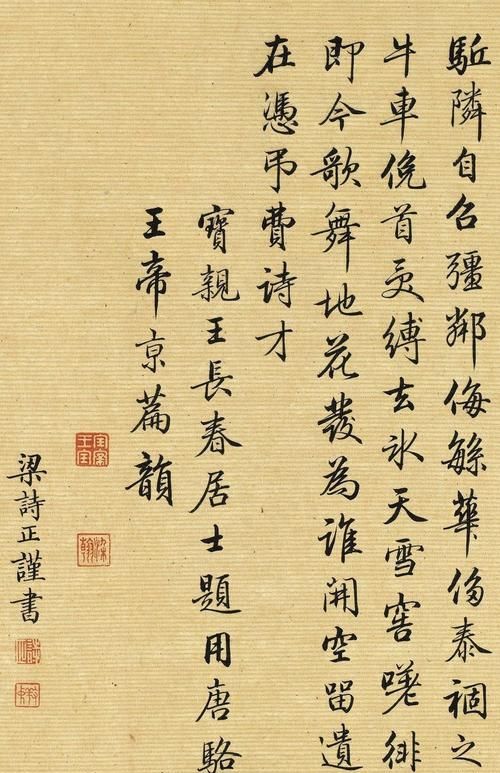 駈隣自召彊鄰侮緐華侈泰禍之
牛車俛首受縛去氷天雪窖嗟徘
即今歌舞地花發為誰開空留遺
在憑弔費詩才
寶親王長春居士題用唐駱
王帝京篇韻
梁詩正謹書